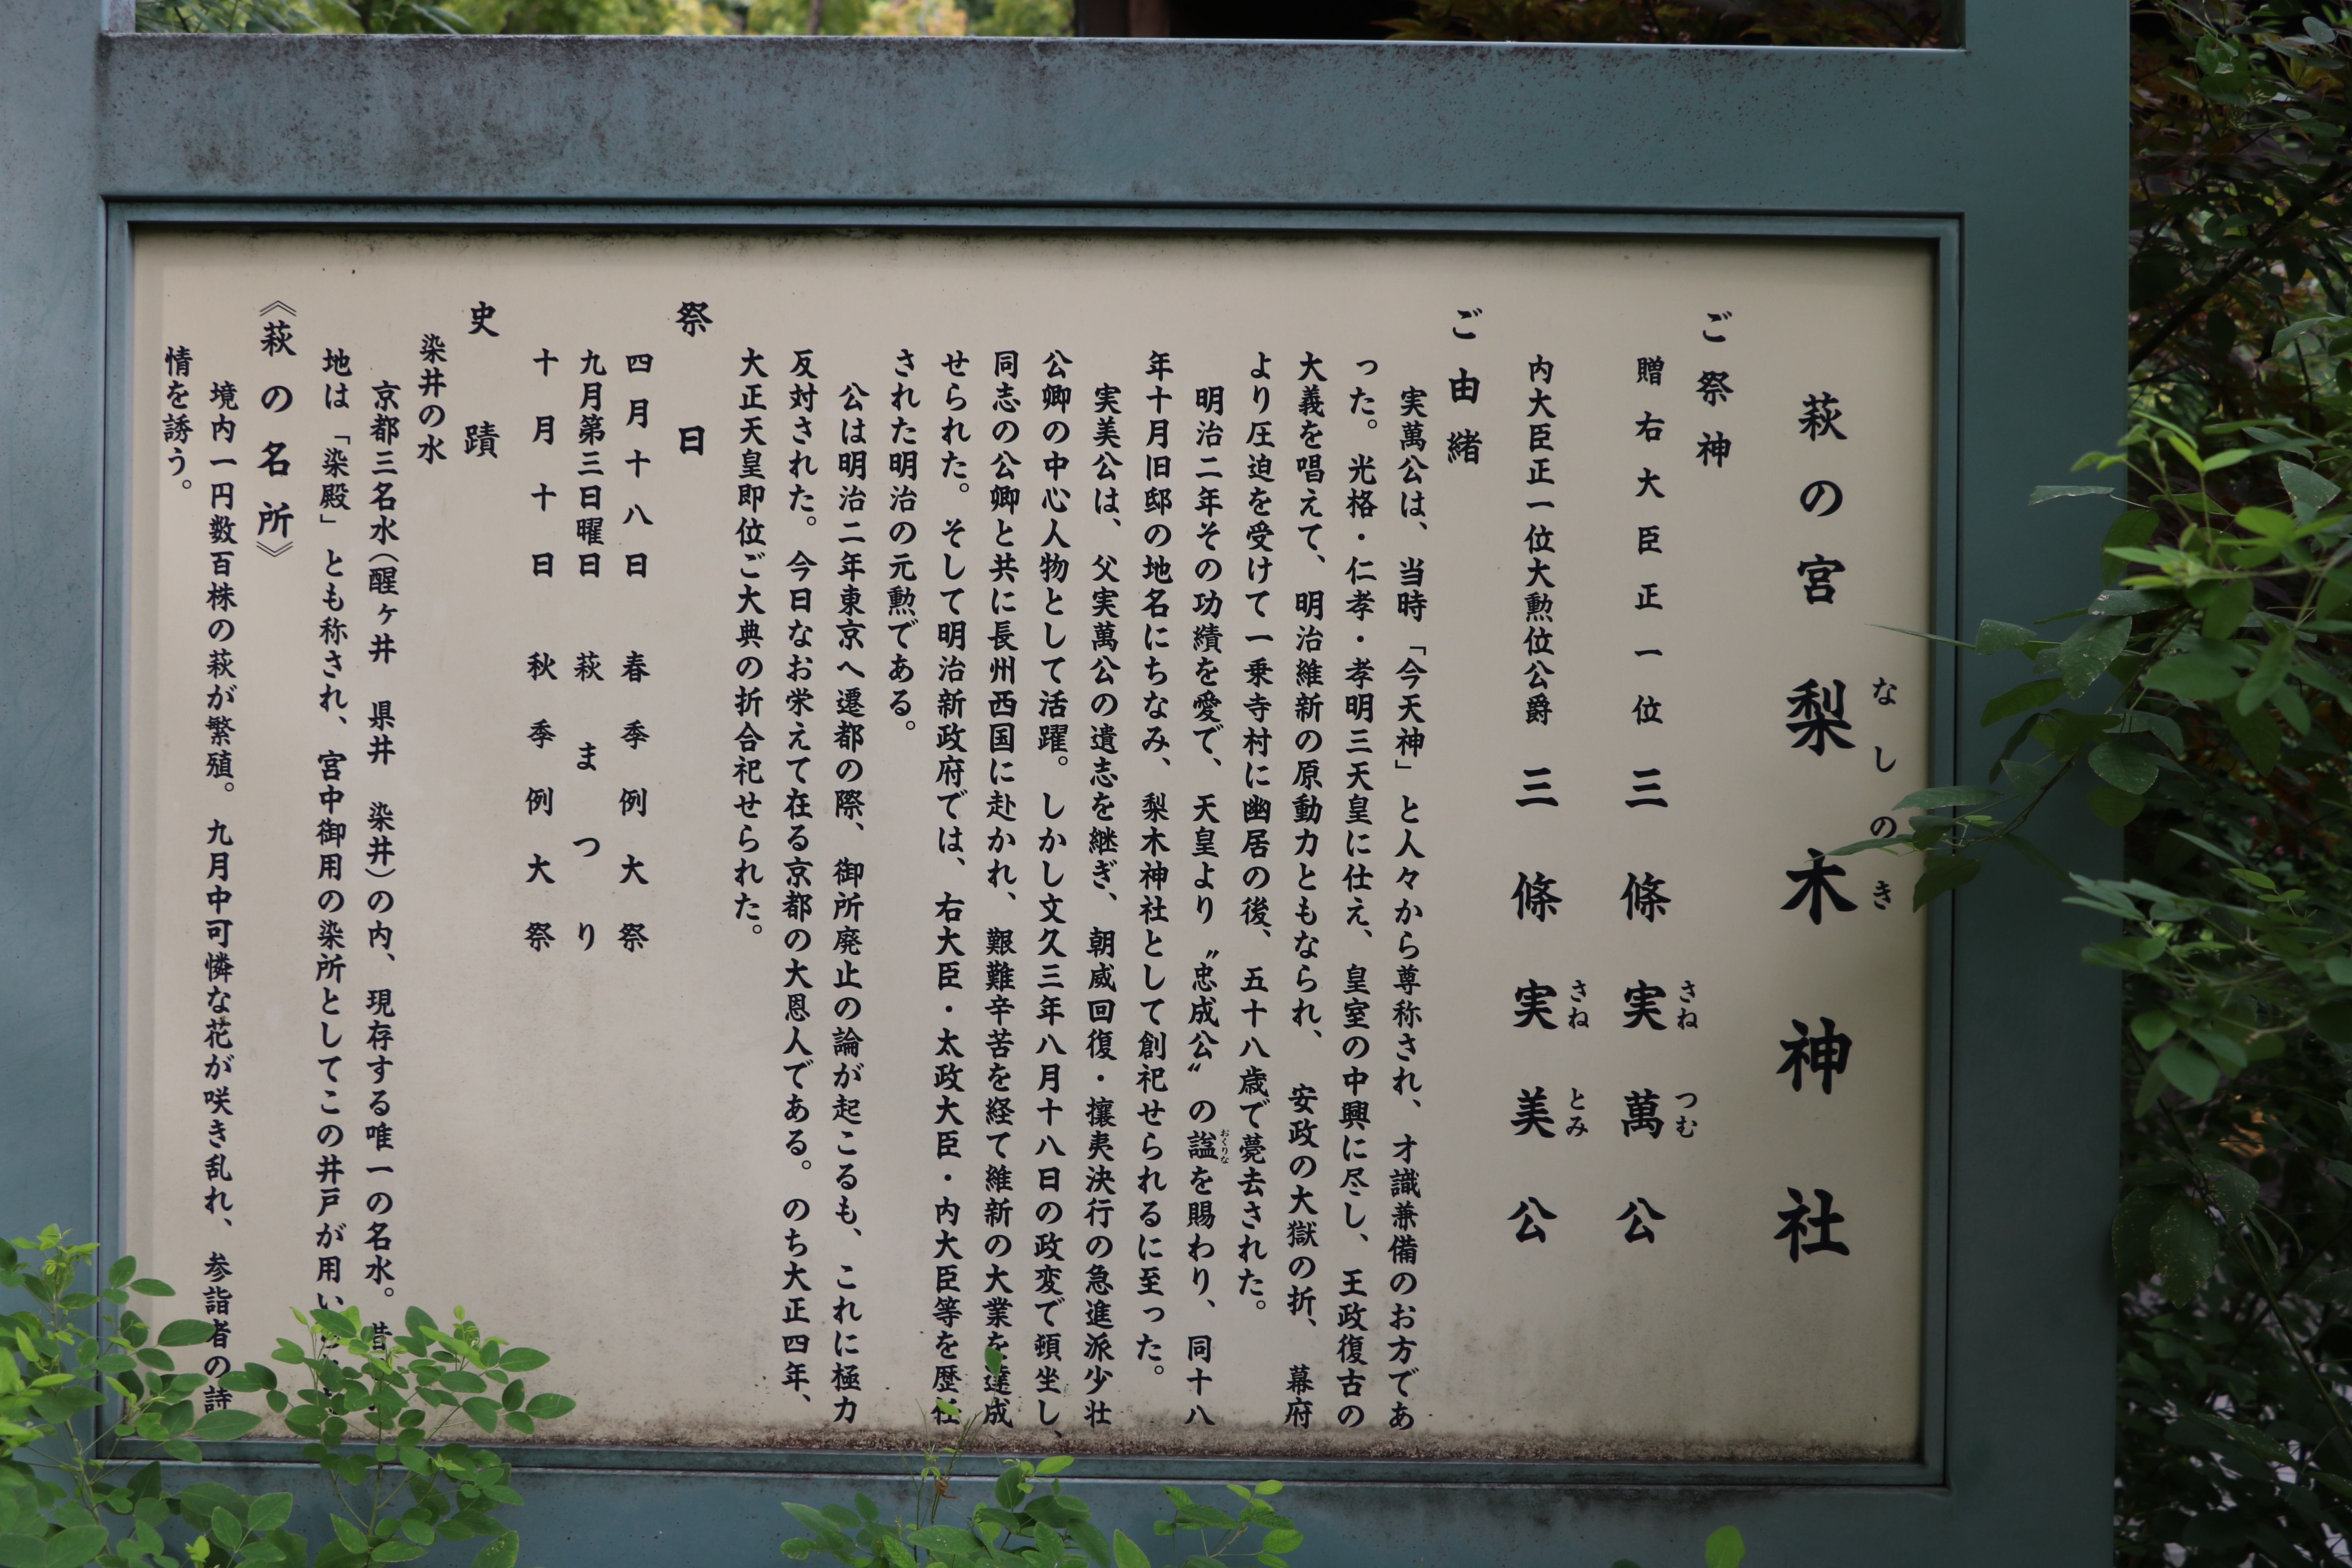 萩の宮 梨木神社
なしのき
ご祭神
贈右大臣正一位 三條実萬公
さねつむ
内大臣正一位大勲位公爵 三條実美公
さねとみ
ご由緒
実萬公は、当時「今天神」と人々から尊称され、才識兼備のお方であ
った。光格・仁孝・孝明三天皇に仕え、皇室の中興に尽し、王政復古の
大義を唱えて、明治維新の原動力ともなられ、安政の大獄の折、幕府
より圧迫を受けて一乗寺村に幽居の後、五十八歳で薨去された。
明治二年その功績を愛で、天皇より〝忠成公〟の諡を賜わり、同十八
おくりな
年十月旧邸の地名にちなみ、梨木神社として創祀せられるに至った。
実美公は、父実萬公の遺志を継ぎ、朝威回復・攘夷決行の急進派少壮
公卿の中心人物として活躍。しかし文久三年八月十八日の政変で頓坐し、
同志の公卿と共に長州西国に赴かれ、艱難辛苦を経て維新の大業を達成
せられた。そして明治新政府では、右大臣・太政大臣・内大臣等を歴任
された明治の元勲である。
公は明治二年東京へ遷都の際、御所廃止の論が起こるも、これに極力
反対された。今日なお栄えて在る京都の大恩人である。のち大正四年、
大正天皇即位ご大典の折合祀せられた。
祭日
四月十八日 春季例大祭
九月第三日曜日 萩まつり
十月十日 秋季例大祭
史蹟
染井の水
京都三名水(醒ヶ井 県井 染井)の内、現存する唯一の名水。昔
地は「染殿」とも称され、宮中御用の染所としてこの井戸が用い
《萩の名所》
境内一円数百株の萩が繁殖。九月中可憐な花が咲き乱れ、参詣者の詩
情を誘う。